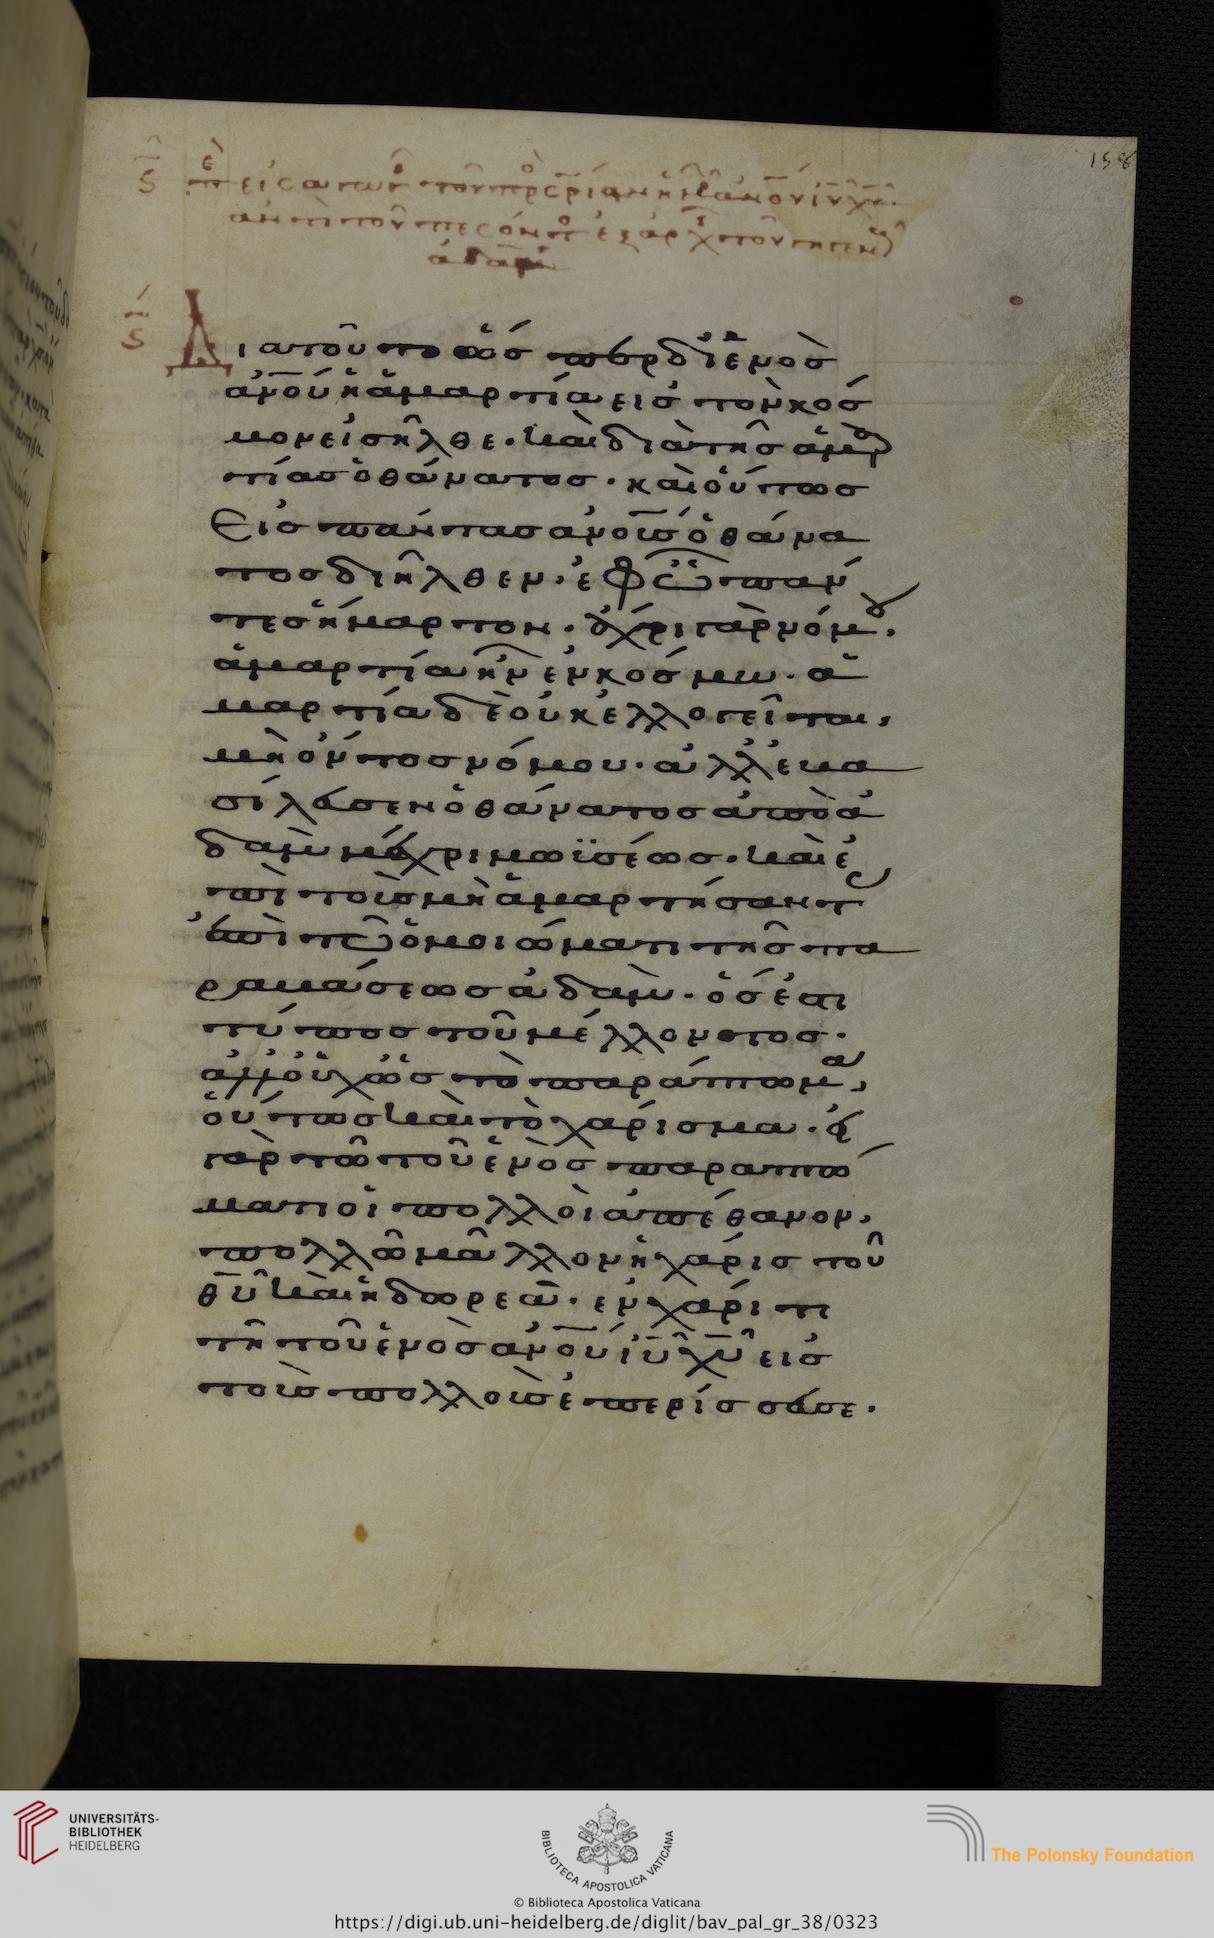 158
Διὰ τοῦτο ὥσπερ δι' ἑνὸς
ἀν̅ου ἡ ἁμαρτία εἰς τὸν κόσ
μον εἰσῆλθε· καὶ διὰ τῆς ἁμαρ
τίας ὁ θάνατος· καὶ οὕτως
εἰς πάντας ἀν̅οις ὁ θάνα
τος διῆλθεν· ἐφ' ᾧ πάν
τες ἥμαρτον· ἄχρι γὰρ νόμου,
ἁμαρτία ἦν ἐν κόσμω· ἁ
μαρτία δὲ οὐκ ἐλλογεῖται,
μὴ ὄντος νόμου· ἀλλ' ἐβα
σίλευσεν ὁ θάνατος ἀπὸ ἀ
δὰμ μέχρι μωϋσέως· καὶ ἐ
πὶ τοὺς μὴ ἁμαρτήσαντας
ἐπὶ τῷ ὁμοιώματι τῆς πα
ραβάσεως ἀδάμ· ὅς ἐστι
τύπος τοῦ μέλλοντος·
ἀλλ' οὐχ ὡς τὸ παράπτωμα,
οὕτως καὶ τὸ χάρισμα· εἰ
γὰρ τῶ τοῦ ἑνὸς παραπτώ
ματι οἱ πολλοὶ ἀπέθανον,
πολλῶ μᾶλλον ἡ χάρις τοῦ
θ̅υ καὶ ἡ δωρεὰ· ἐν χάριτι
τῆ τοῦ ἑνὸς ἀν̅ου ι̅υ χ̅υ εἰς
τοὺς πολλοὺς ἐπερίσσευσε·
UNIVERSITÄTS-
BIBLIOTHEK
HEIDELBERG
BIBLIOTECA APOSTOLICA VATICANA
The Polonsky Foundation
© Biblioteca Apostolica Vaticana
https://digi.ub.uni-heidelberg.de/diglit/bav_pal_gr_38/0323